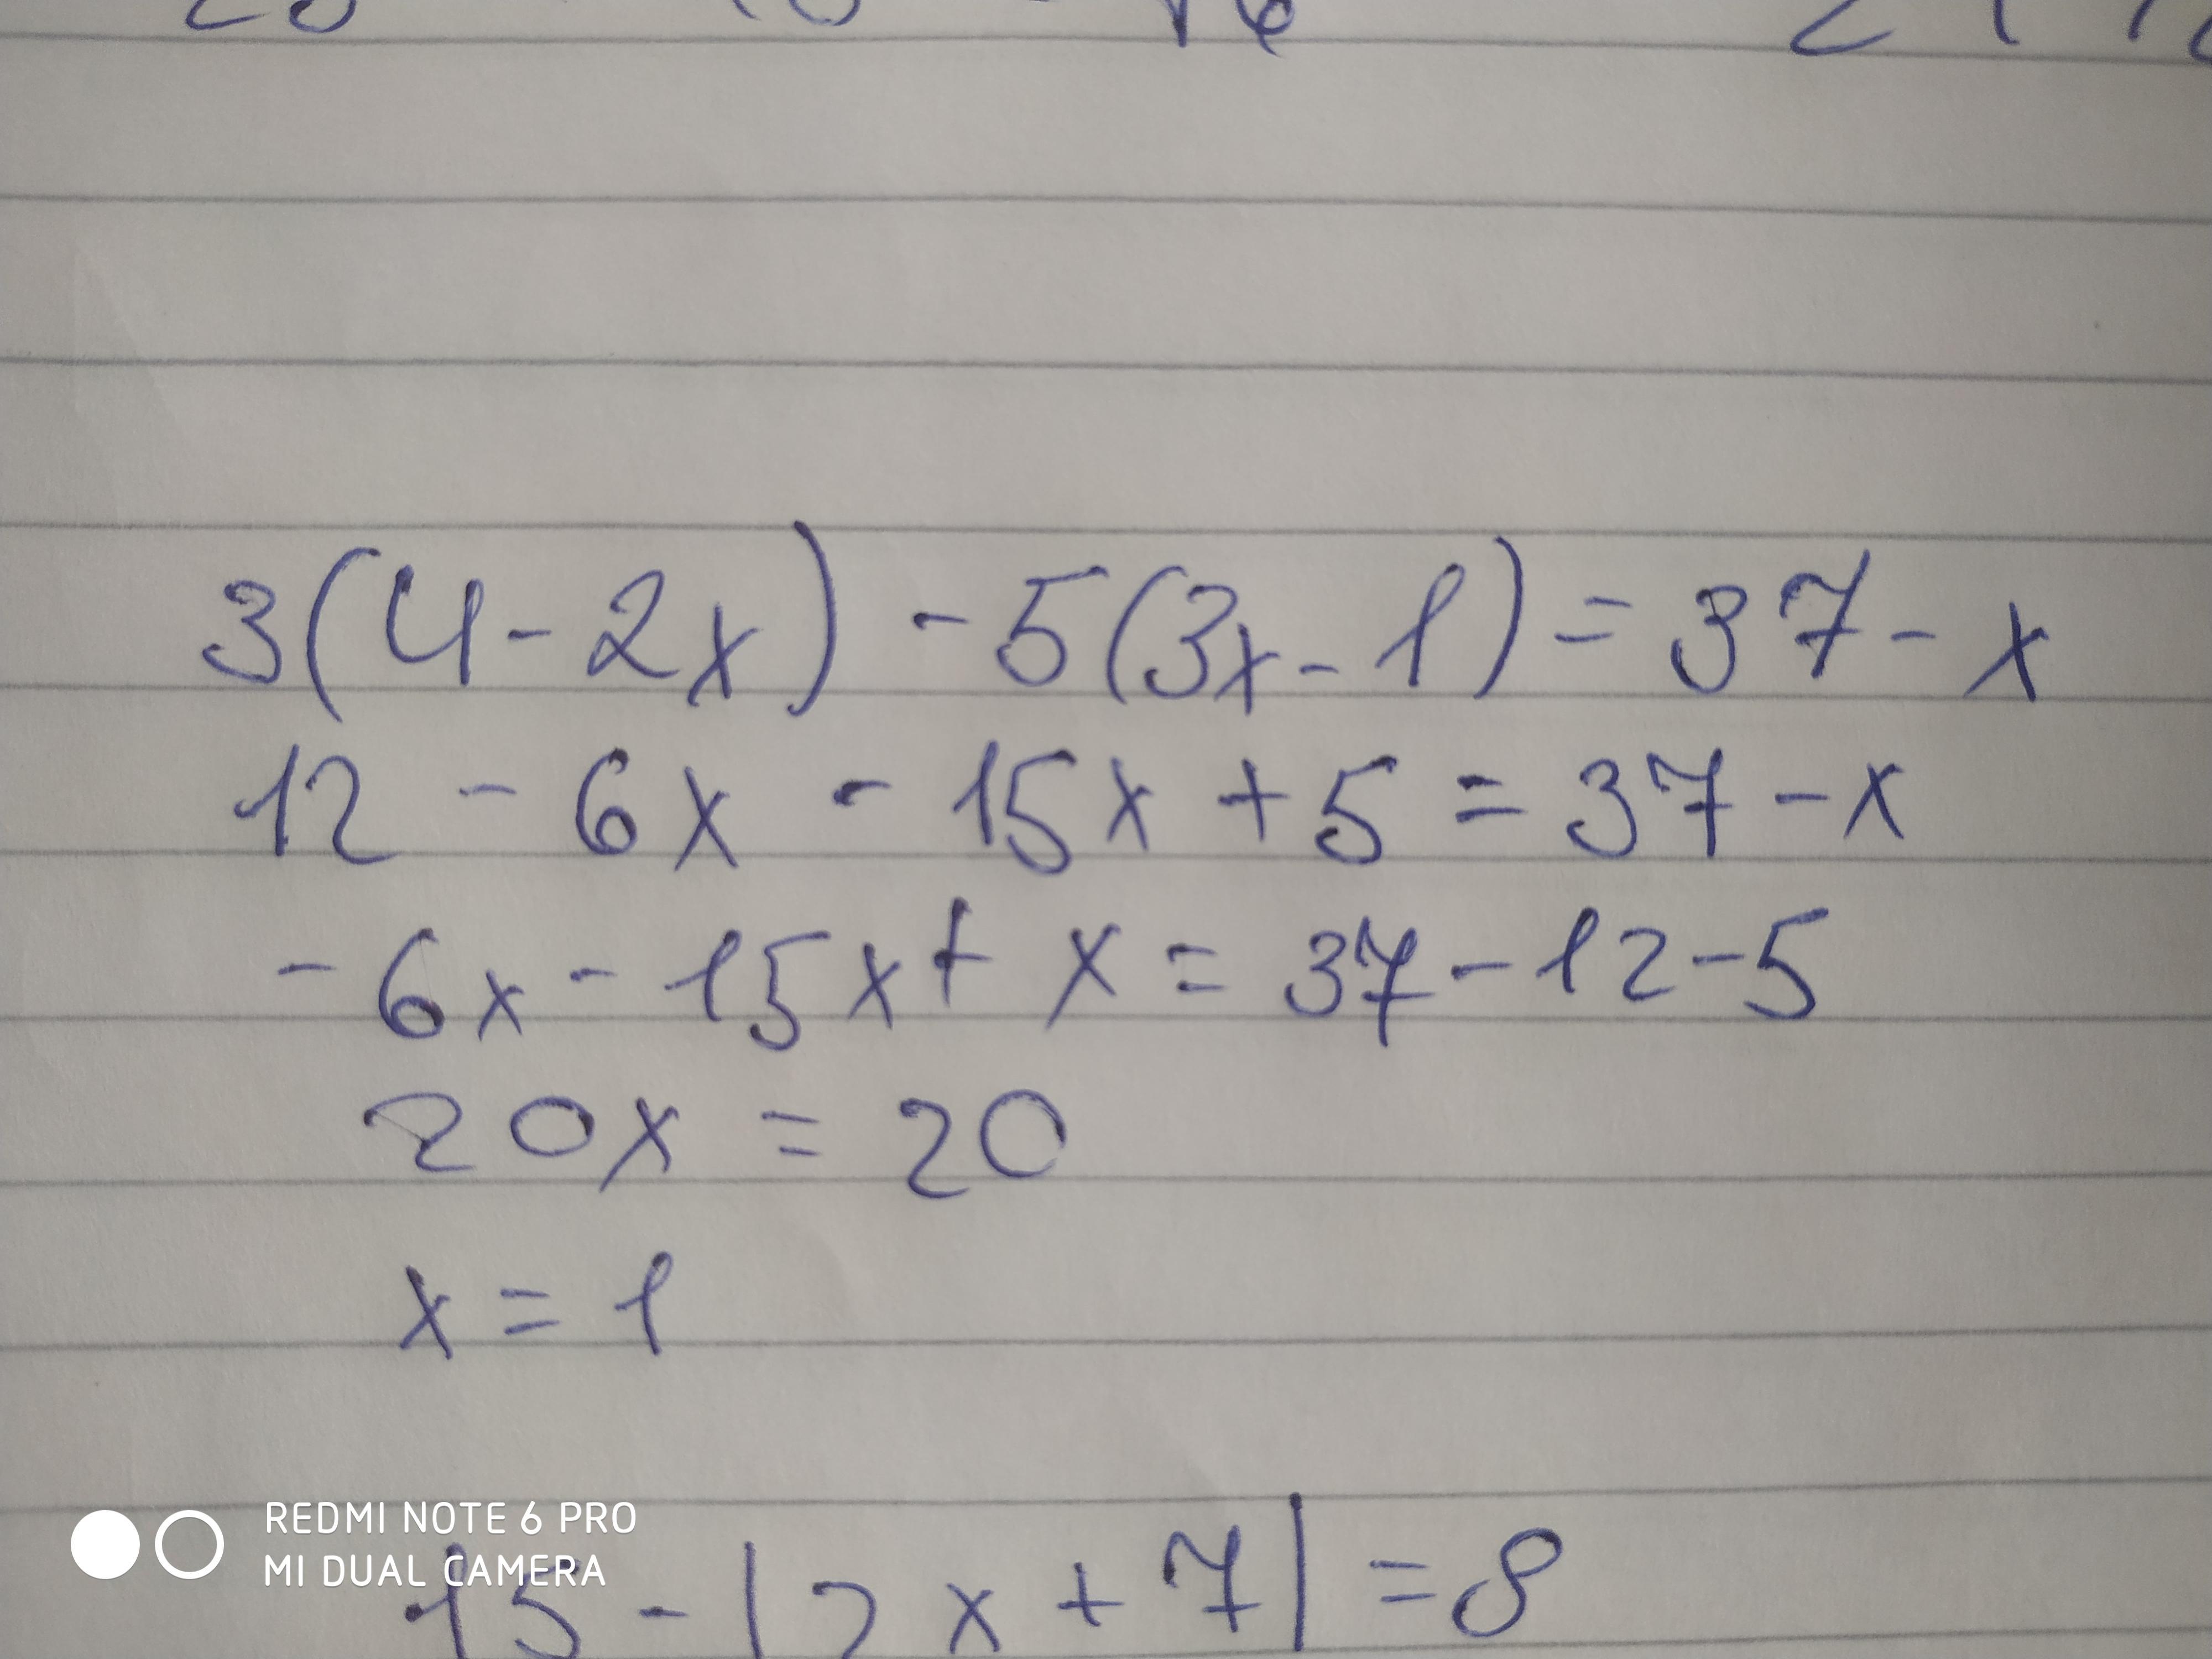 3(4-2x) -5(3x-1)=37-x
12 - 6x - 15x+5=37-x
-6x-15x+ x=37-12-5
20x = 20
x = 1
REDMI NOTE 6 PRO
MI DUAL CAMERA
15-|2x+7|=8